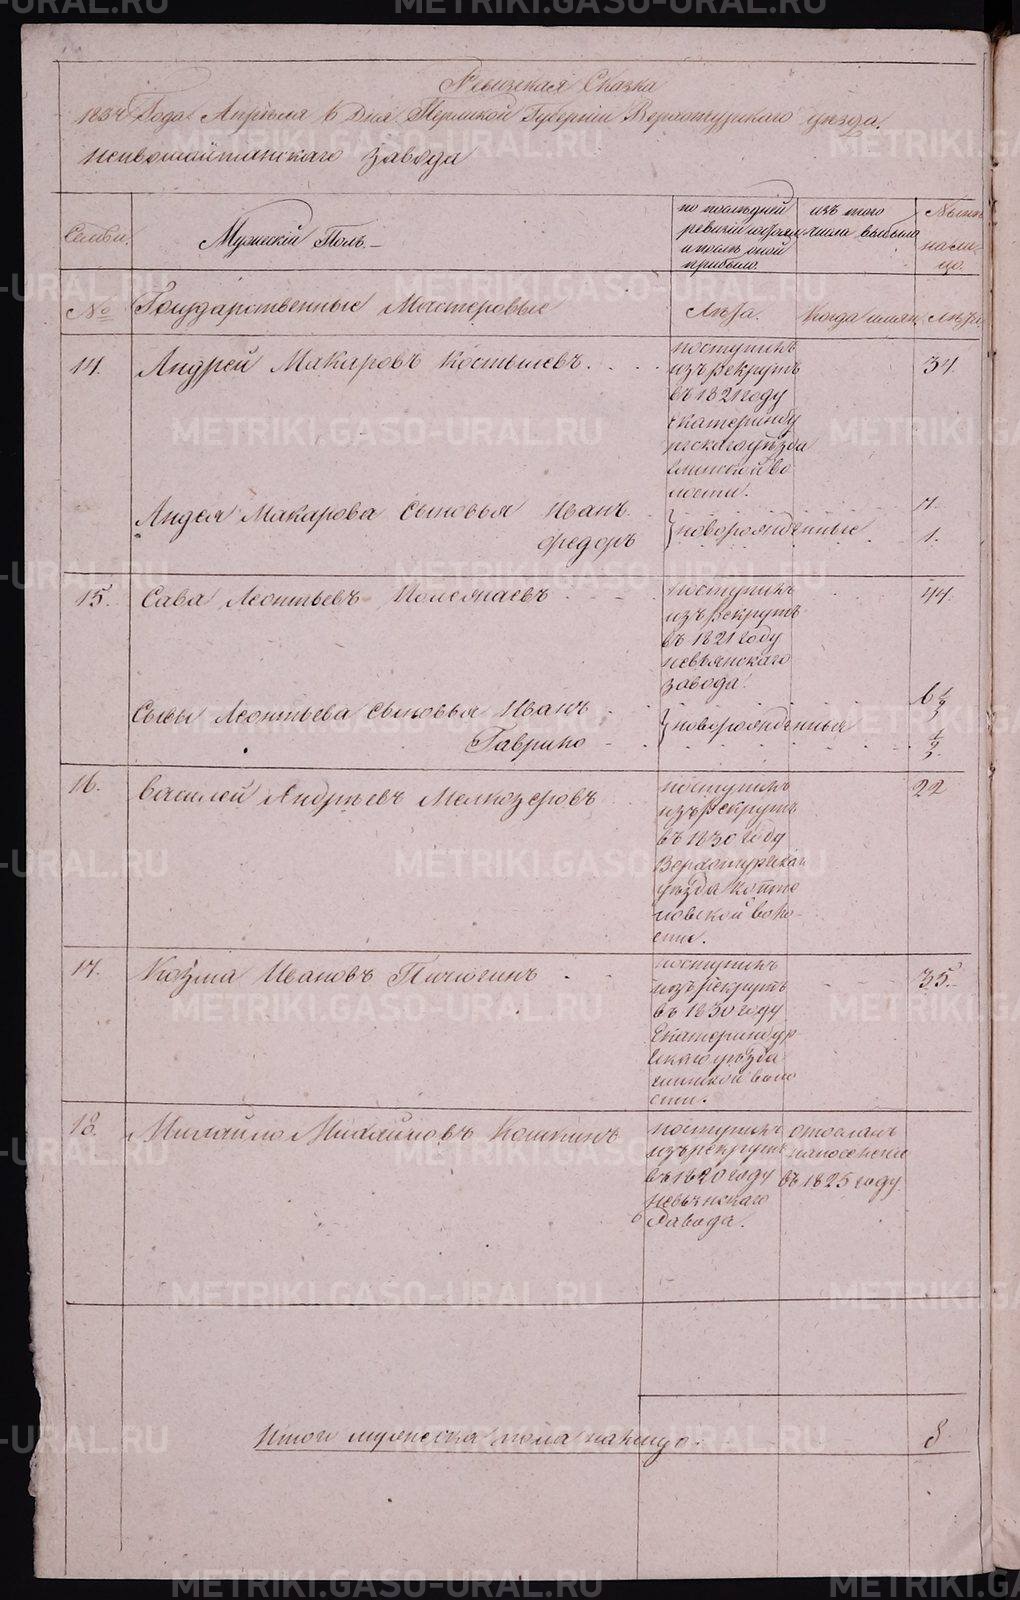 Ревизская Сказка
1834 Года Апреля 6 Дня Пермской Губернии Верхотурского уезда.
Нейвошайтанскаго завода
Семьи.
Мужеский Полъ.
по последней
ревизии состояло
и после оной
прибыло.
изъ того
числа выбыло
Ныне
на ли-
цо.
№
Государственные Мастеровые
Лета.
Когда имян.
Лета
14.
Андрей Макаровъ Костылевъ
поступилъ
изъ рекрутъ
въ 1821 году
Екатеринбу
ргскаго уезда
волости.
34.
Андрея Макарова сыновья Иванъ
Федоръ
новорожденные
7.
1.
15.
Сава Леонтьевъ
поступилъ
изъ рекрутъ
въ 1821 году
невьянскаго
завода.
44.
Савы Леонтьева сыновья Иванъ
Гаврило
новорожденныя
6 1/2
1/2
16.
Василей Андреевъ Мелкозеровъ
поступилъ
изъ рекрутъ
въ 1830 году
Верхотурскаго
уезда копте
ловской воло-
сти.
22
17.
Козма Ивановъ Пичюгинъ
поступилъ
изъ рекрутъ
въ 1830 году
Екатеринбур
скаго уезда
воло
сти.
35.
18.
Михайло Михайловъ Кошкинъ
поступилъ
изъ рекрутъ
въ 1820 году
Невьянскаго
завода.
отосланъ
на поселение
въ 1825 году
Итого мужеска пола на лицо
8
METRIKI.GASO-URAL.RU